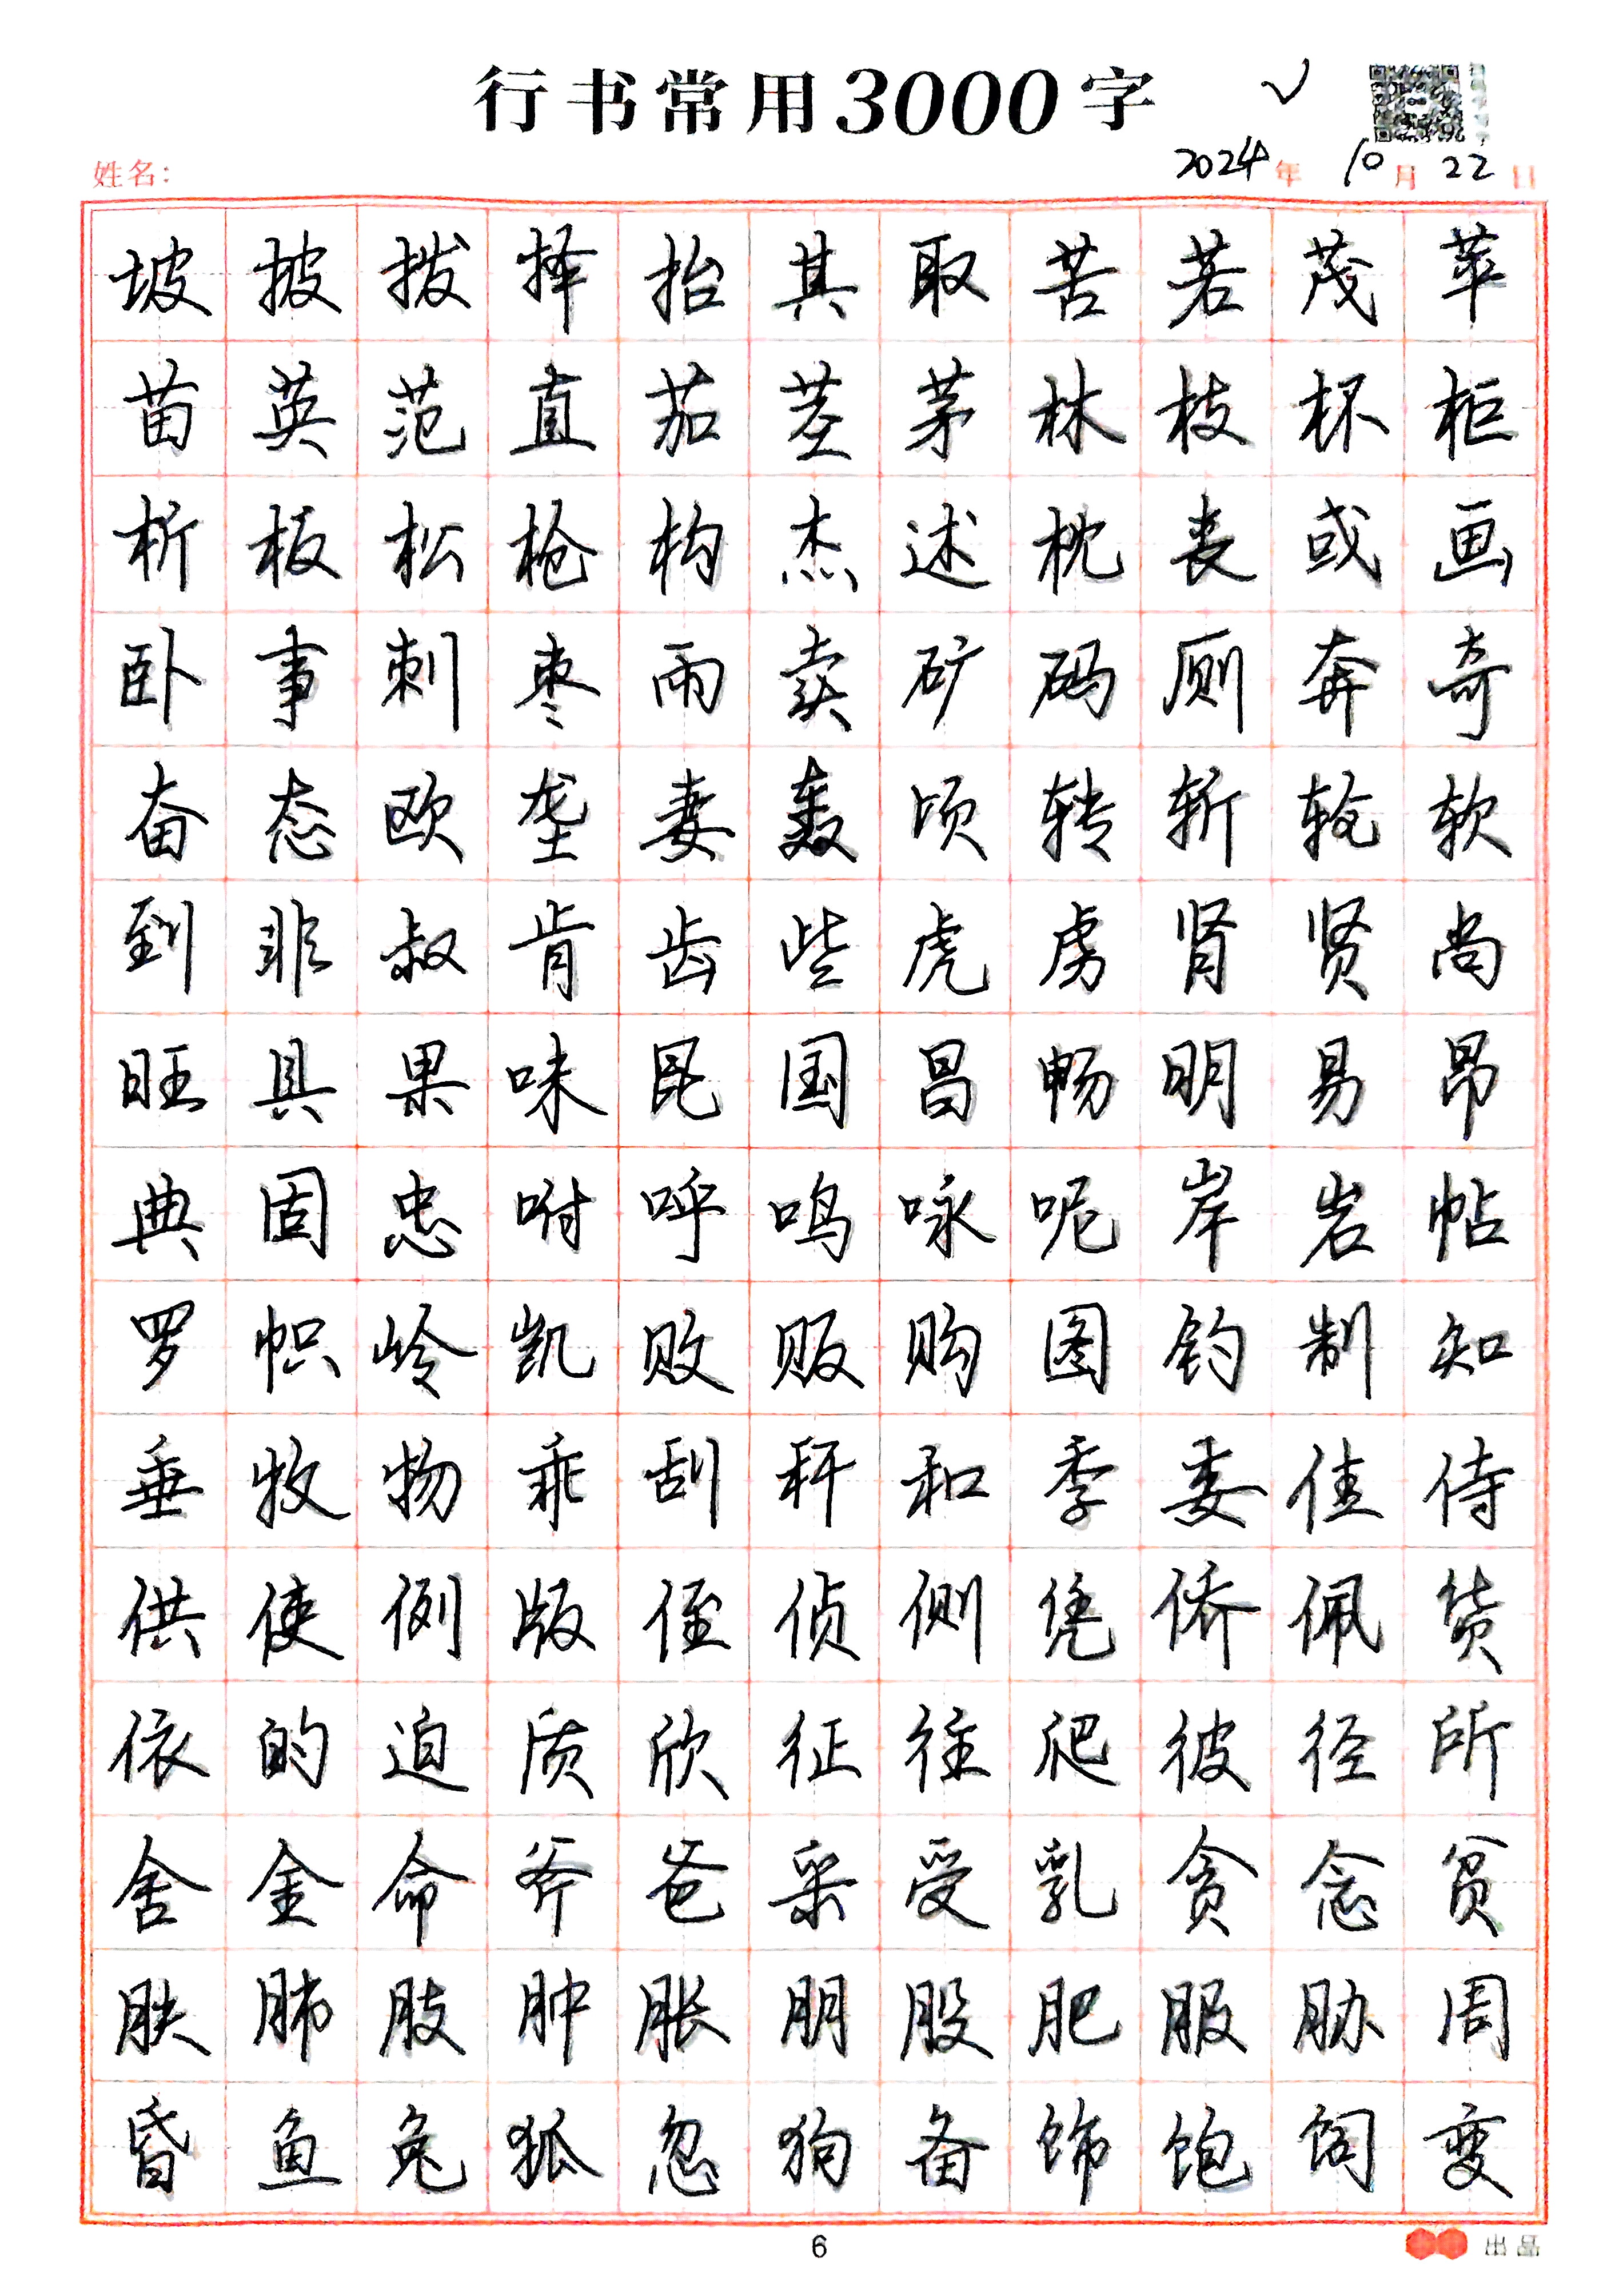 行书常用3000字 ✓
姓名: 2024年 10月 22日
坡 披 拨 择 抬 其 取 苦 若 茂 苹
苗 英 范 直 茄 茎 茅 林 枝 杯 柜
析 板 松 枪 构 杰 述 枕 丧 或 画
卧 事 刺 枣 雨 卖 矿 码 厕 奔 奇
奋 态 欧 垄 妻 轰 顷 转 斩 轮 软
到 非 叔 肯 齿 些 虎 虏 肾 贤 尚
旺 具 果 味 昆 国 昌 畅 明 易 昂
典 固 忠 咐 呼 鸣 咏 呢 岸 岩 帖
罗 帜 岭 凯 败 贩 购 图 钓 制 知
垂 牧 物 乖 刮 秆 和 季 委 佳 侍
供 使 例 版 侄 侦 侧 凭 侨 佩 货
依 的 迫 质 欣 征 往 爬 彼 径 所
舍 金 命 斧 爸 采 受 乳 贪 念 贫
肤 肺 肢 肿 胀 朋 股 肥 服 胁 周
昏 鱼 兔 狐 忽 狗 备 饰 饱 饲 变
6
出品